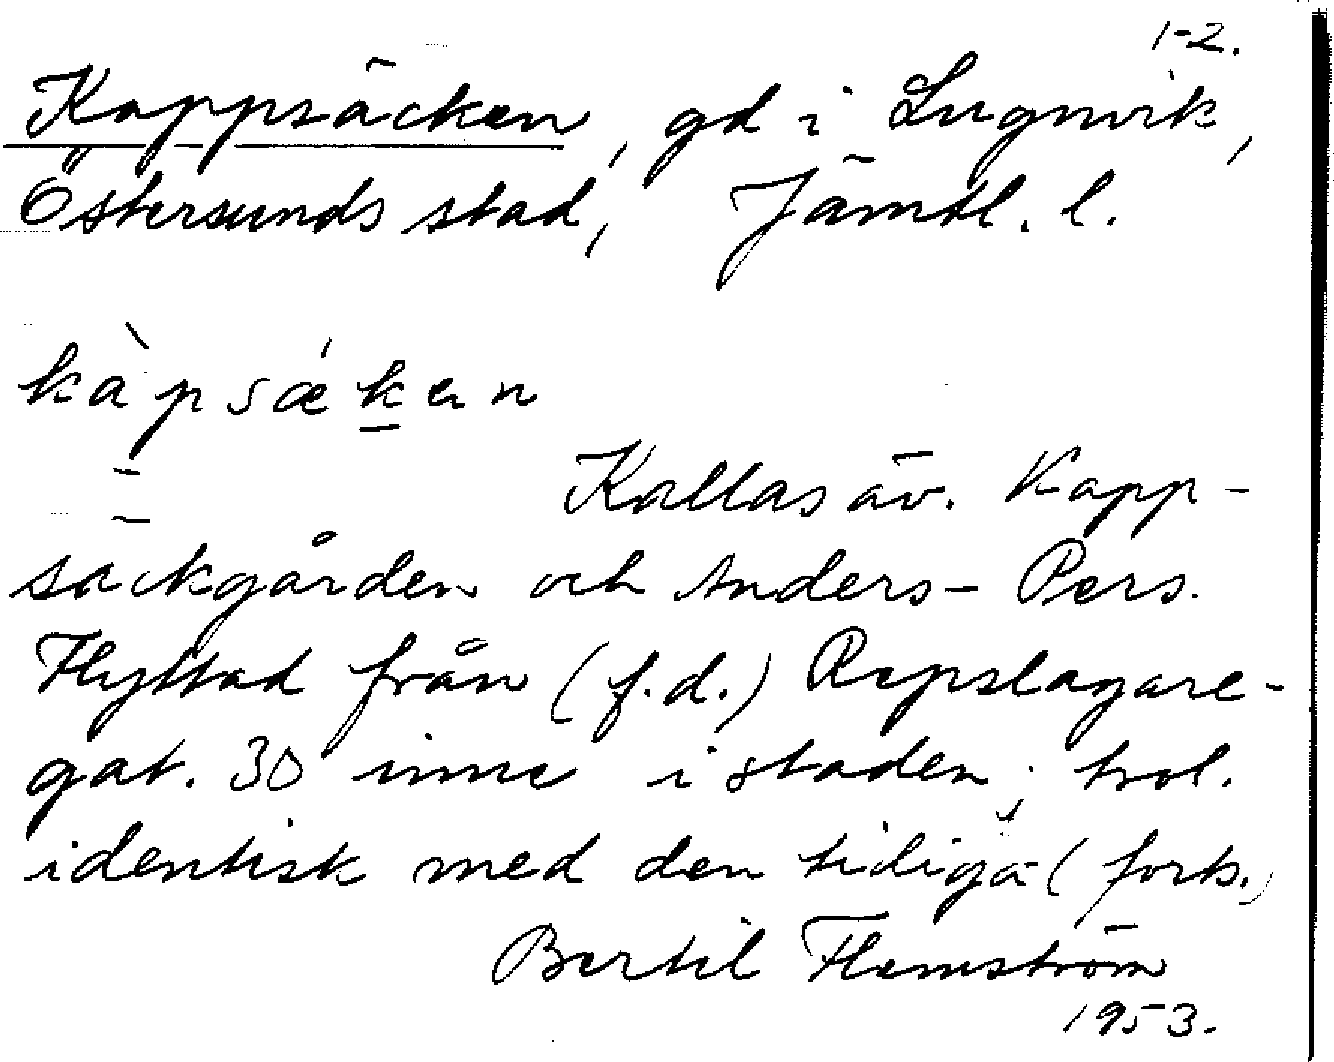 1-2.
Kappsäcken, gd i Lugnvik,
Östersunds stad, Jämtl. l.
kàpsǽken
Kallas äv. Kapp-
säckgården och Anders-Pers.
Flyttad från (f.d.) Repslagare-
gat. 30 inne i staden; trol.
identisk med den tidiga (forts.)
Bertil Flemström
1953.